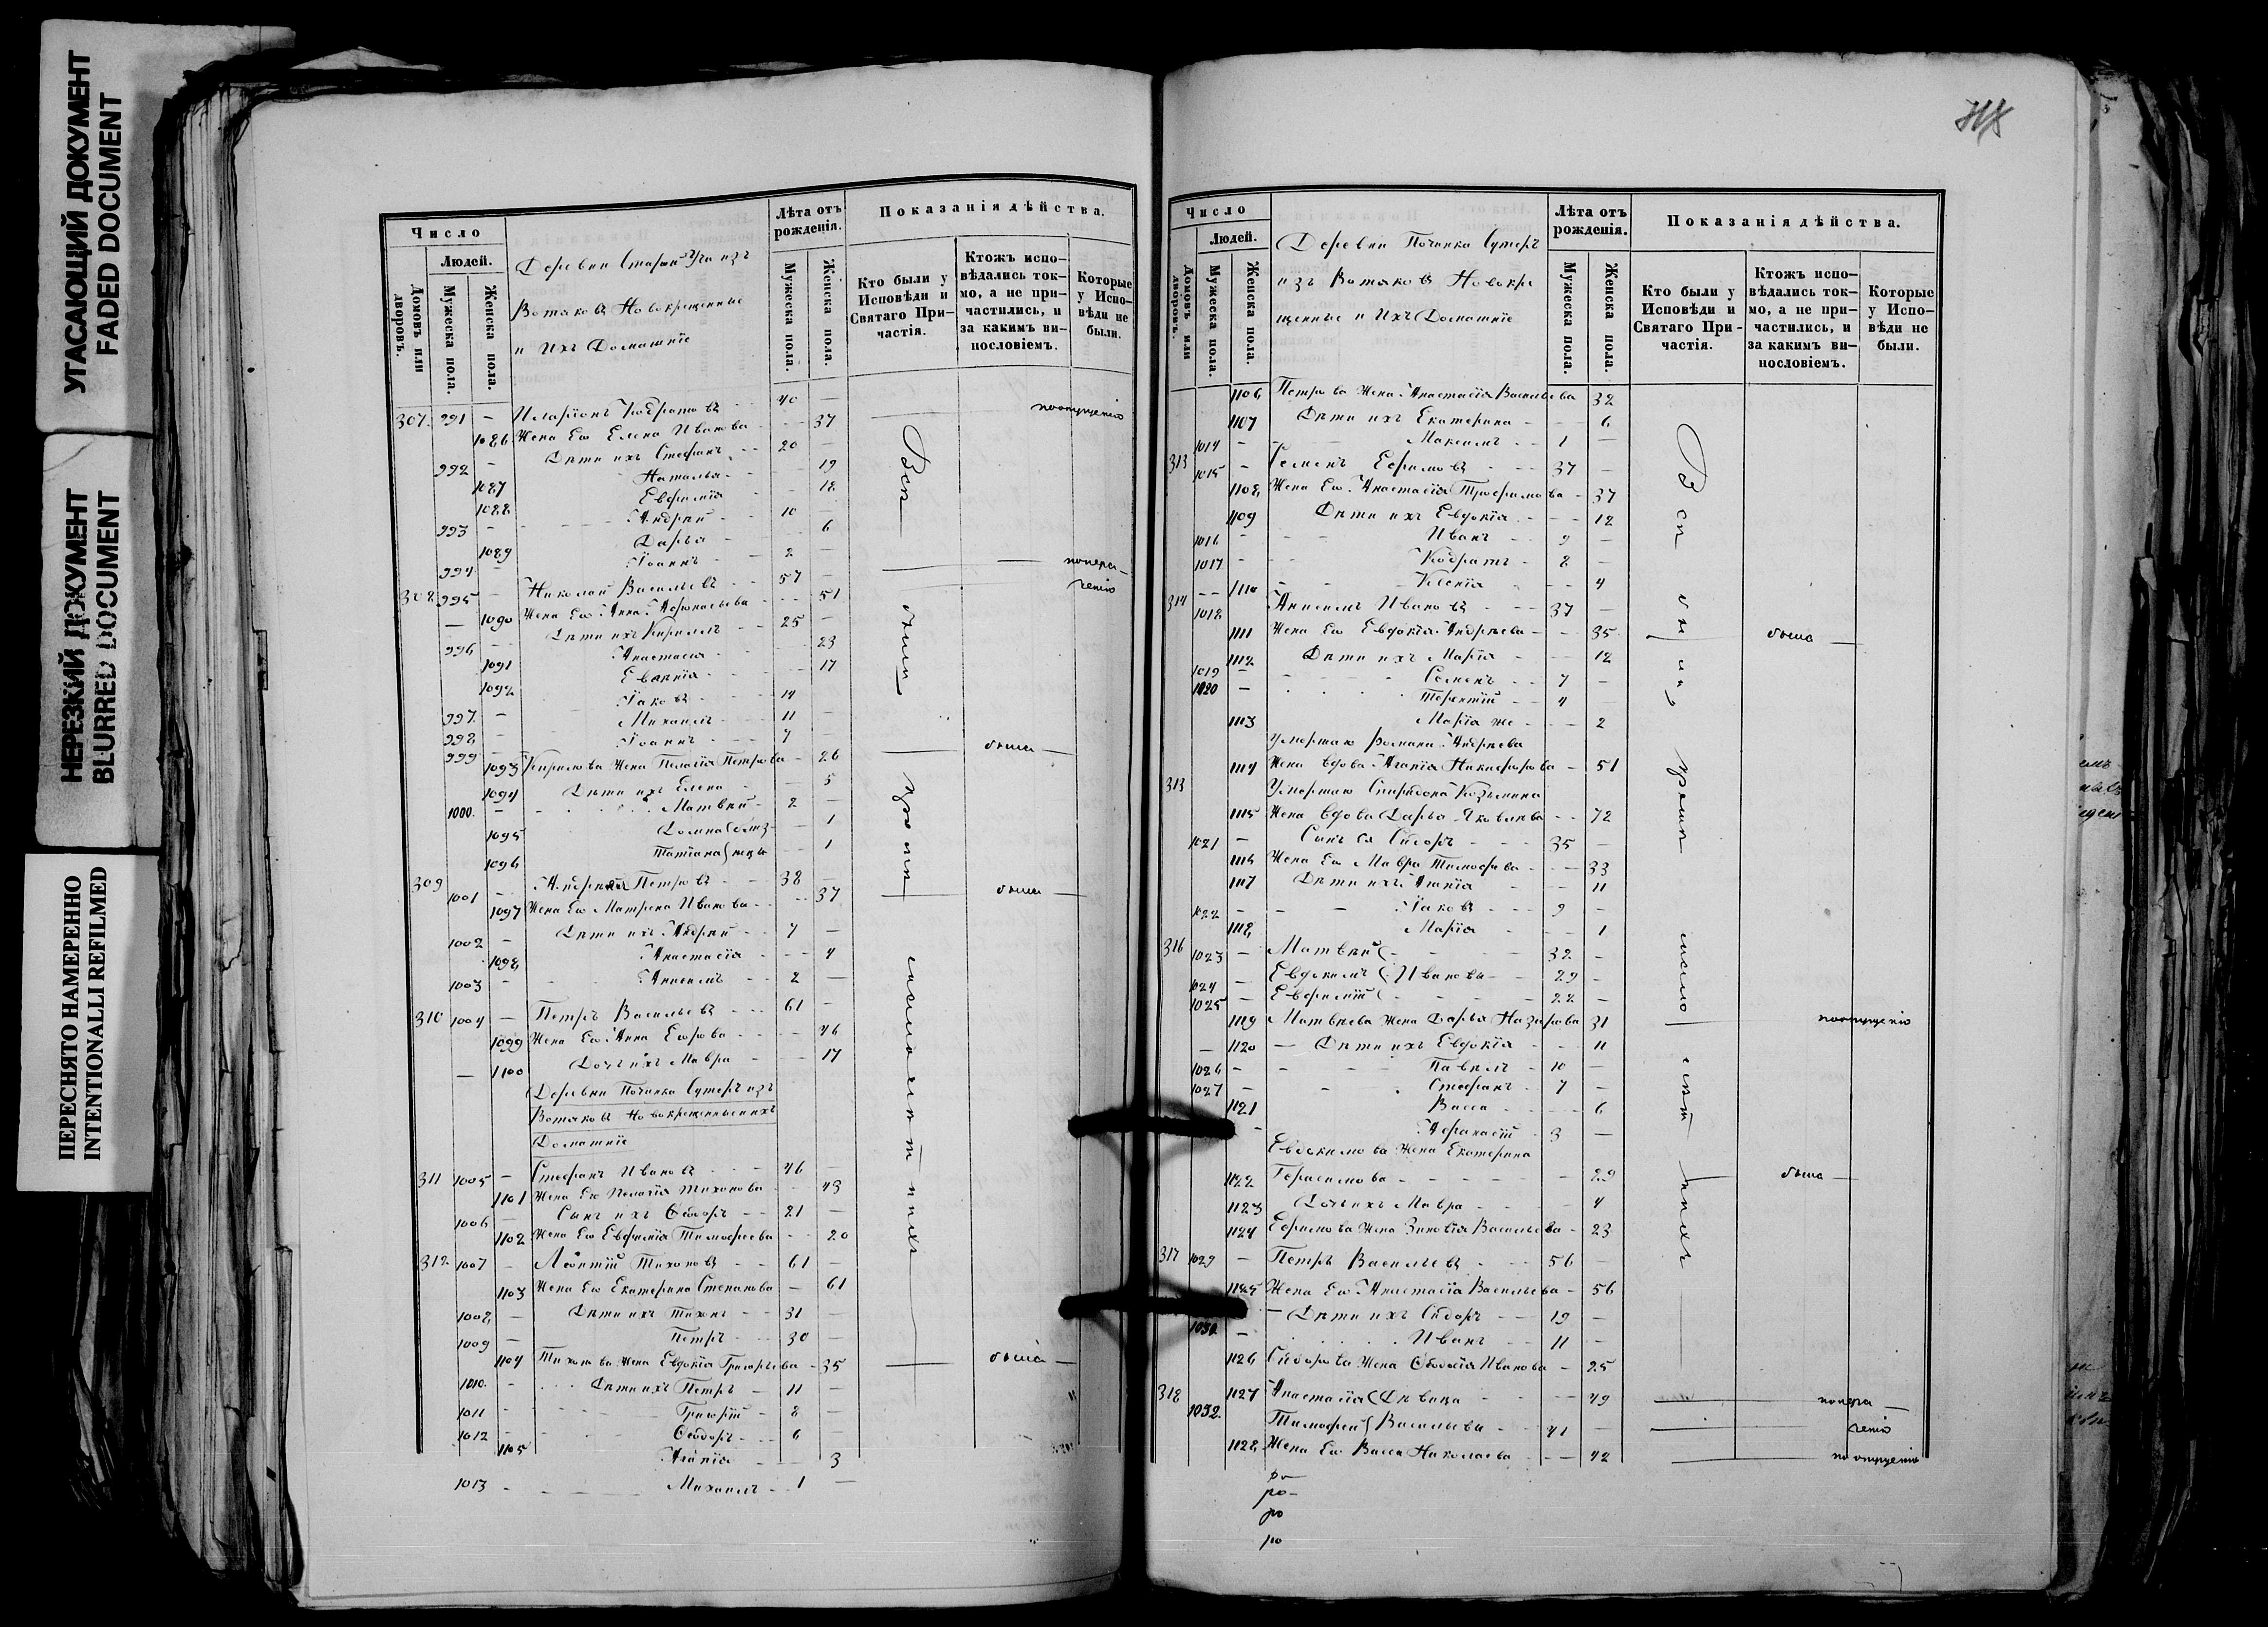 УГАСАЮЩИЙ ДОКУМЕНТ
FADED DOCUMENT
НЕРЕЗКИЙ ДОКУМЕНТ
BLURRED DOCUMENT
ПЕРЕСНЯТО НАМЕРЕННО
INTENTIONALLI REFILMED
Число
Людей.
Домовъ или дворовъ.
Мужеска пола.
Женска пола.
Деревни Старой Уча изъ
Вотяковъ Новокрещенные
и Ихъ Домашніе
Лѣта отъ рожденія.
Мужеска пола.
Женска пола.
Показанія дѣйства.
Кто были у Исповѣди и Святаго Причастія.
Ктожъ исповѣдались токмо, а не причастились, и за какимъ винословіемъ.
Которые у Исповѣди не были.
307. 991 – Иларіонъ Кодратовъ 40 –
1086 Жена Его Елена Иванова 37
992 – Дѣти ихъ Стефанъ 20 –
1087 Наталья 19
1088 Евфимія 18
993 – Андрей 10 –
1089 Дарья 6
994 – Іоаннъ 2 –
308 995 – Николай Васильевъ 57 –
1090 Жена Его Анна Афонасьева 51
996 – Дѣти ихъ Кириллъ 25 –
1091 Анастасія 23
1092 17
997. – Іаковъ 14 –
998 – Михаилъ 11 –
999 – Іоаннъ 7 –
1093 Кирилова Жена Пелагія Петрова 26
1094 Дѣти ихъ Елена 5
1000. – Матвѣй 2 –
1095 Домна 1
1096 Татіана 1
309 1001 – Андрей Петровъ 38 –
1097 Жена Его Матрена Иванова 37
1002 – Дѣти ихъ Андрей 7 –
1098 Анастасія 4
1003 – 2 –
310 1004 – Петръ Васильевъ 61 –
1099 Жена Его Анна Егорова 46
1100 Дочь ихъ Мавра 17
Деревни Починка Сутеръ изъ
Вотяковъ Новокрещенные и ихъ
Домашніе
311 1005 – Стефанъ Ивановъ 46 –
1101 Жена Его Пелагія Тихонова 43
1006 – Сынъ ихъ Ѳедоръ 21 –
1102 Жена Его Евфимія Тимофеева 20
312 1007 – Леонтій Тихоновъ 61 –
1103 Жена Его Екатерина Степанова – 61
1008 – Дѣти ихъ Тихонъ 31 –
1009 – Петръ 30 –
1104 Тихонова Жена Евдокія Григорьева 35
1010. – Дѣти ихъ Петръ 11 –
1011 – Григорій 8 –
1012 – Ѳеодоръ 6 –
1105 Агапія 3
1013 Михаилъ 1 –
Всѣ были
поопущенію
попереченію
была
была
была
Число
Людей.
Домовъ или дворовъ.
Мужеска пола.
Женска пола.
Деревни Починка Сутеръ
изъ Вотяковъ Новокре
щенные и Ихъ Домашніе
Лѣта отъ рожденія.
Мужеска пола.
Женска пола.
Показанія дѣйства.
Кто были у Исповѣди и Святаго Причастія.
Ктожъ исповѣдались токмо, а не причастились, и за какимъ винословіемъ.
Которые у Исповѣди не были.
1106 Петрова Жена Анастасія Васильева 32
1107 Дѣти ихъ Екатерина 6
1014 – Максимъ 1 –
313 1015 – Семенъ Ефимовъ 37 –
1108 Жена Его Анастасія Трофимова 37
1109 Дѣти ихъ Евдокія 12
1016 – Иванъ 9 –
1017 – Кодратъ 8 –
1110 Ксенія 4
314 1018 Анисимъ Ивановъ 37 –
1111 Жена Его Евдокія Андреева 35
1112 Дѣти ихъ Марія 12
1019 – Семенъ 7 –
1020 – Терентій 4 –
1113 Марія же 2
Умершаго Романа Андреева
1114 Жена вдова Агапія Никифорова 51
313 Умершаго Спиридона Козьмина
1115 Жена вдова Дарья Яковлева 72
1021 – Сынъ ея Сидоръ 35 –
1116 Жена Его Мавра Тимофеева 33
1117 Дѣти ихъ Агапія 11
1022 – Іаковъ 9 –
1118 Марія 1
316 1023 – Матвѣй 32 –
1024 – Евдокимъ Ивановы 29 –
1025 – Евфимій 22 –
1119 Матвѣева Жена Дарья Назарова 31
1120 – Дѣти ихъ Евдокія 11
1026 – Павелъ 10 –
1027 – Стефанъ 7 –
1121 Васса 6
Афанасій 3 –
Евдокимова Жена Екатерина
1122 Герасимова 29
1123 Дочь ихъ Мавра 4
1124 Ефимова Жена Зиновія Васильева 23
317 1029 – Петръ Васильевъ 56 –
1125 Жена Его Анастасія Васильева 56
– Дѣти ихъ Сидоръ 19 –
1030. – Иванъ 11 –
1126 Сидорова Жена Ѳеодосія Иванова 25
318 1127 Анастасія Дѣвица 49
1032. Тимофей Васильевы 41 –
1128 Жена Его Васса Николаева 42
Всѣ
была
поопущенію
была
попереченію
по опущенію
ро
ро
ро
ро